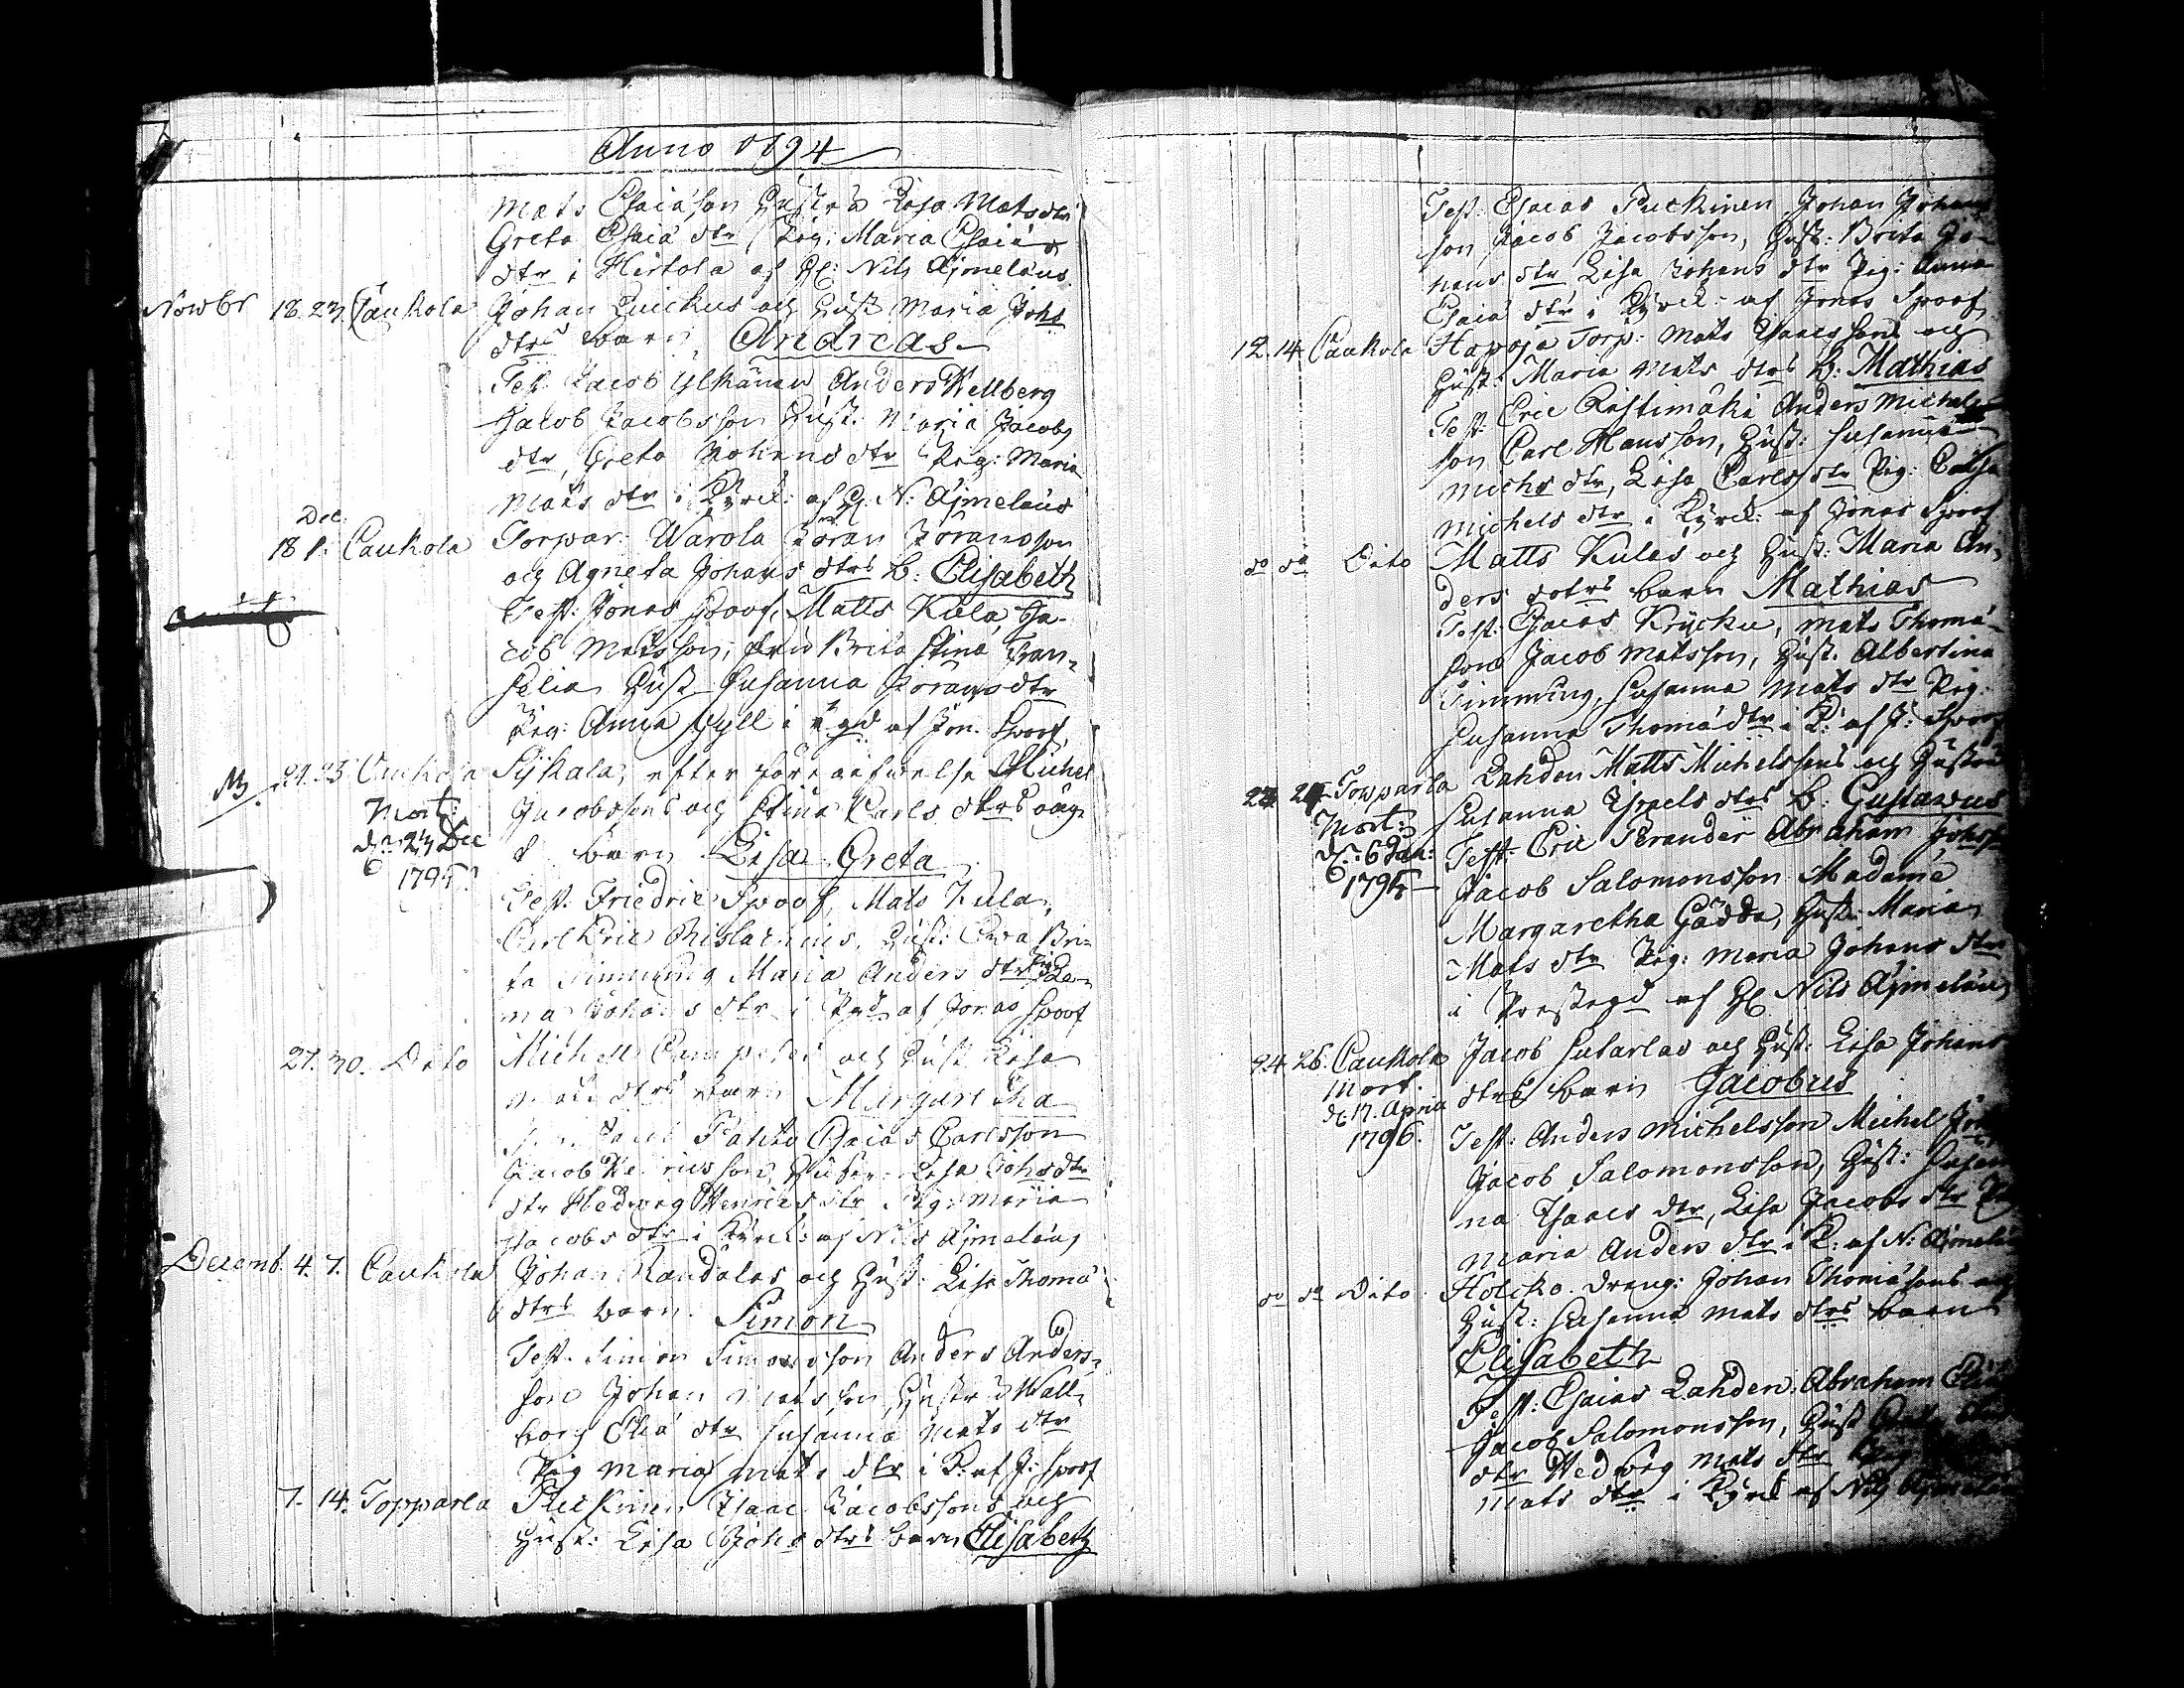 Anno 1794
Mats Esaiæson Hustr: Lisa Matsdtr
Greta Esaiæ dtr Pig: Maria Esaiæ
dtr i Hirtola af H: Nils Ajmelæus
Nowbr 18. 23. Caukola Johan Quickus och Hust Maria Johs
dtrs barn Andreas
Test. Jacob Ylhänen Anders Wellberg
Jacob Jacobsson Hust. Maria Jacobs
dtr, Greta Johans dtr Pig: Maria
Mats dtr i Kyrck: af H. N: Ajmelæus
Dec.
18 1. Caukola Torpar Warola Jöran Jöransson
och Agneta Johans dtrs b: Elisabeth
Test: Jonas Spoof, Matts Kula, Ja-
cob Matsson, fru Brita Stina Fran-
selia Hust Susanna Jörans dtr
Pig: Anna Gyll i af Jon. Spoof
21. 23. Caukola Sykala, efter Michel
Mort: Jacobssons och Stina Carls dtrs
d. 24 Dec barn Lisa Greta
1795.
Test. Friedric Spoof, Mats Kula,
Carl Eric Hust: Ewa Bri-
ta Timming Maria Anders dtr Pig: He-
na Johans dtr i af Jonas Spoof
27. 30. Dito Michell och Hust Lisa
dtrs barn Margaretha
Esaias Carlsson
Jacob Henricsson, Lisa Johs dtr
dtr Hedwig Henrics dtr Pig: Maria
Jacobs dtr i Kyrck: af Nils Ajmelæus
Decemb. 4. 7. Caukola Johan Randalas och Hust: Lisa Thomæ
dtrs barn. Simon
Test. Simon Simonsson Anders Anders-
son Johan Matsson, Hustr Wall-
borg Eliæ dtr Susanna Mats dtr
Pig Maria Mats dtr i K: af J: Spoof
7. 14. Topparla Puckinen Isaac Jacobssons och
Hust: Lisa Johs dtrs barn Elisabeth
Test: Esaias Puckinen, Johan Johans
son, Jacob Jacobsson, Hust: Brita Jo-
hans dtr Lisa Johans dtr Pig: Anna
Esaiæ dtr i Kyrck: af Jonas Spoof
12. 14. Caukola Hapoja Torp: Mats Isaacssons och
Hust: Maria Mats dtrs b: Mathias
Test: Eric Ristimäki Anders Michels
son Carl Hansson, Hust: Susanna
Michs dtr, Lisa Carls dtr Pig: Caisa
Michels dtr i Kyrck: af Jonas Spoof
do do Dito Matts Kulas och Hust: Maria An-
ders dotrs barn Mathias
Test: Esaias Krycku, Mats Thomæ-
son Jacob Matsson, Hust. Albertina
Timming, Susanna Mats dtr Pig:
Susanna Thomæ dtr i K: af J: Spoof
Towparla Lahden Matts Michelssons och Hustru
Mort: Susanna Israels dtrs b: Gustawus
d: 6 Jan: Test: Eric Perander Abraham Johs
1795 Jacob Salomonsson Madame
Margaretha Gädda, Hust: Maria
Mats dtr Pig: Maria Johans dtr
i Prestegd af H Nils Ajmelæus
24. 26. Caukola Jacob Sutarlas och Hust. Lisa Johans
Mort. dtrs barn Jacobus
d. 17. April
1796. Test: Anders Michelsson Michel
Jacob Salomonsson, Hust: Susan
na Isaacs dtr, Lisa Jacobs dtr
Maria Anders dtr i K: af N: Ajmelæus
do do Dito Hoicko dreng: Johan Thomæsons och
Hust: Susanna Mats dtrs barn
Elisabeth
Test: Esaias Lahden, Abraham
Jacob Salomonsson, Hust
dtr Hedwig Mats dtr
Mats dtr i Kyrck af Nils Ajmelæus